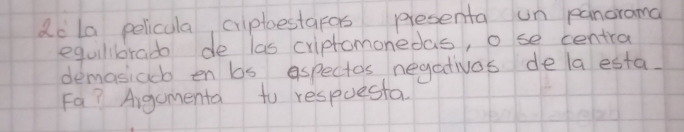 2¿ la pelicula criptoestafas presenta un panorama
equilibrado de las criptomonedas, o se centra
demasiado en los aspectos negativos de la esta-
Fa? Argumenta tu respuesta.